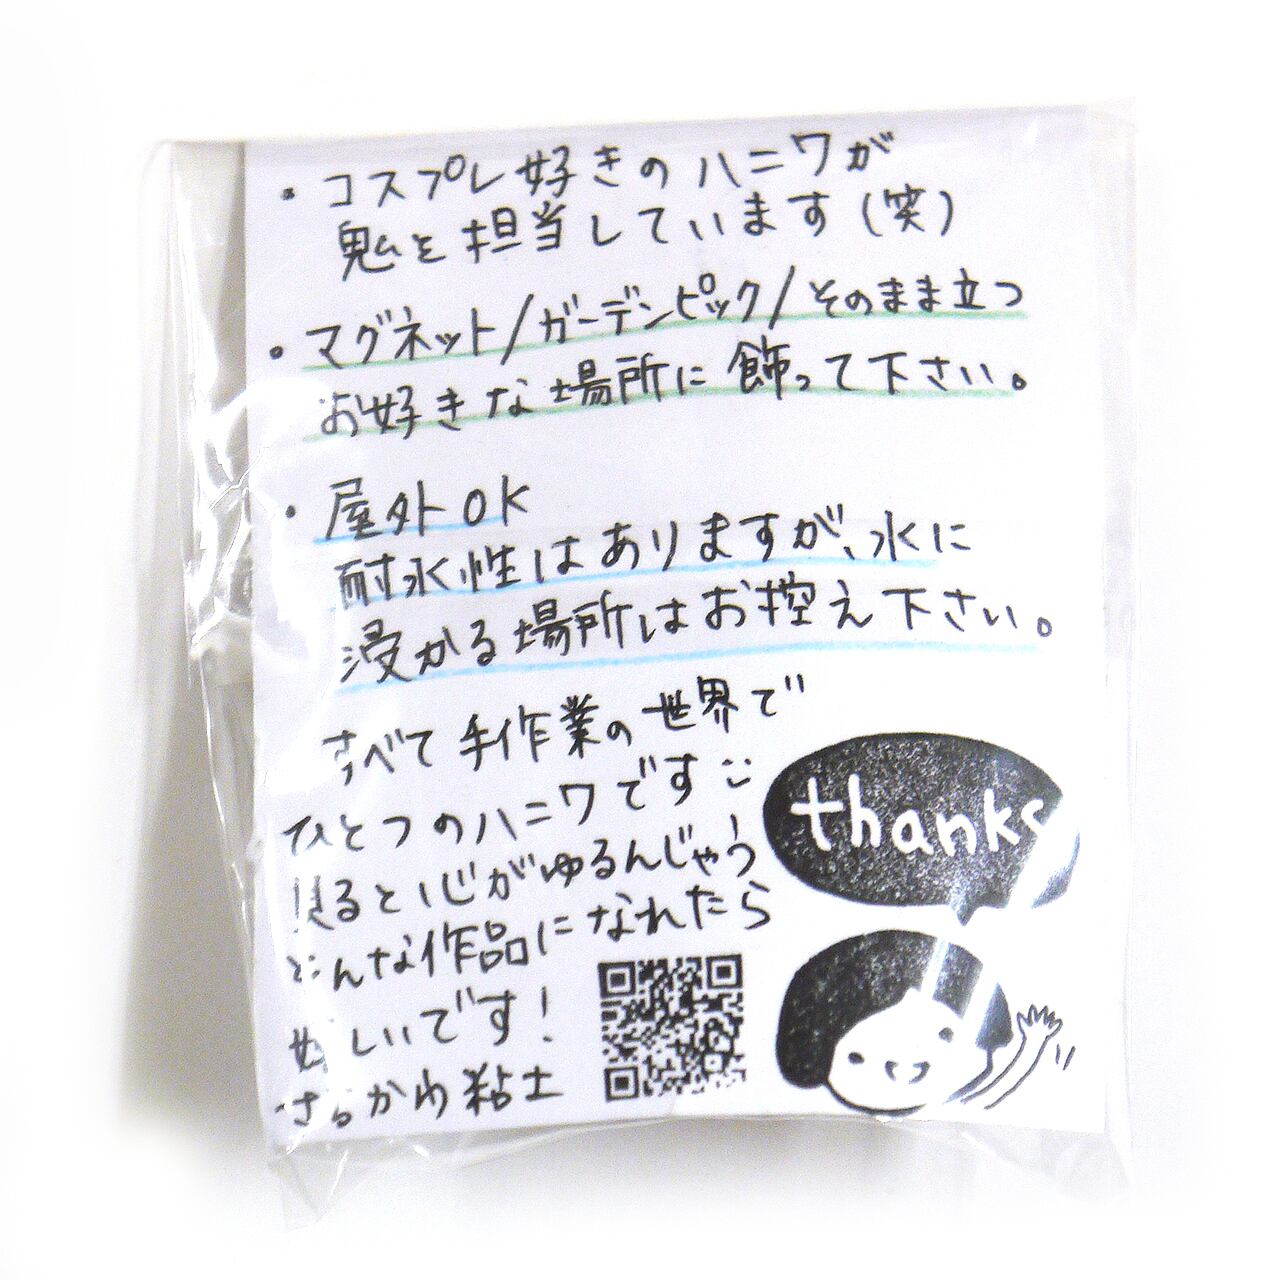 ・コスプレ好きのハニワが
鬼を担当しています(笑)
・マグネット/ガーデンピック/そのまま立つ
お好きな場所に飾って下さい。
・屋外OK
耐水性はありますが、水に
浸かる場所はお控え下さい。
すべて手作業の世界で
ひとつのハニワです
見ると心がゆるんじゃう
そんな作品になれたら
嬉しいです!
さるかわ粘土
thanks